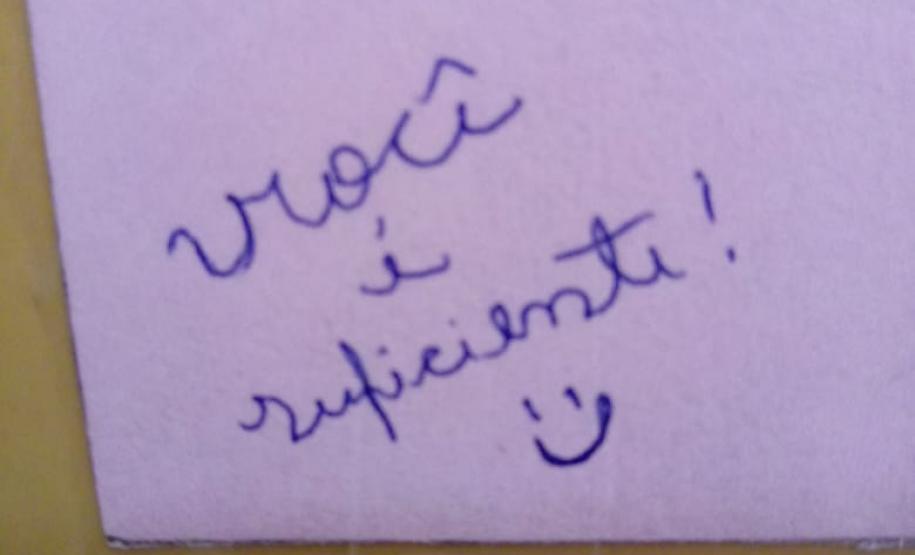 você
é
suficiente!